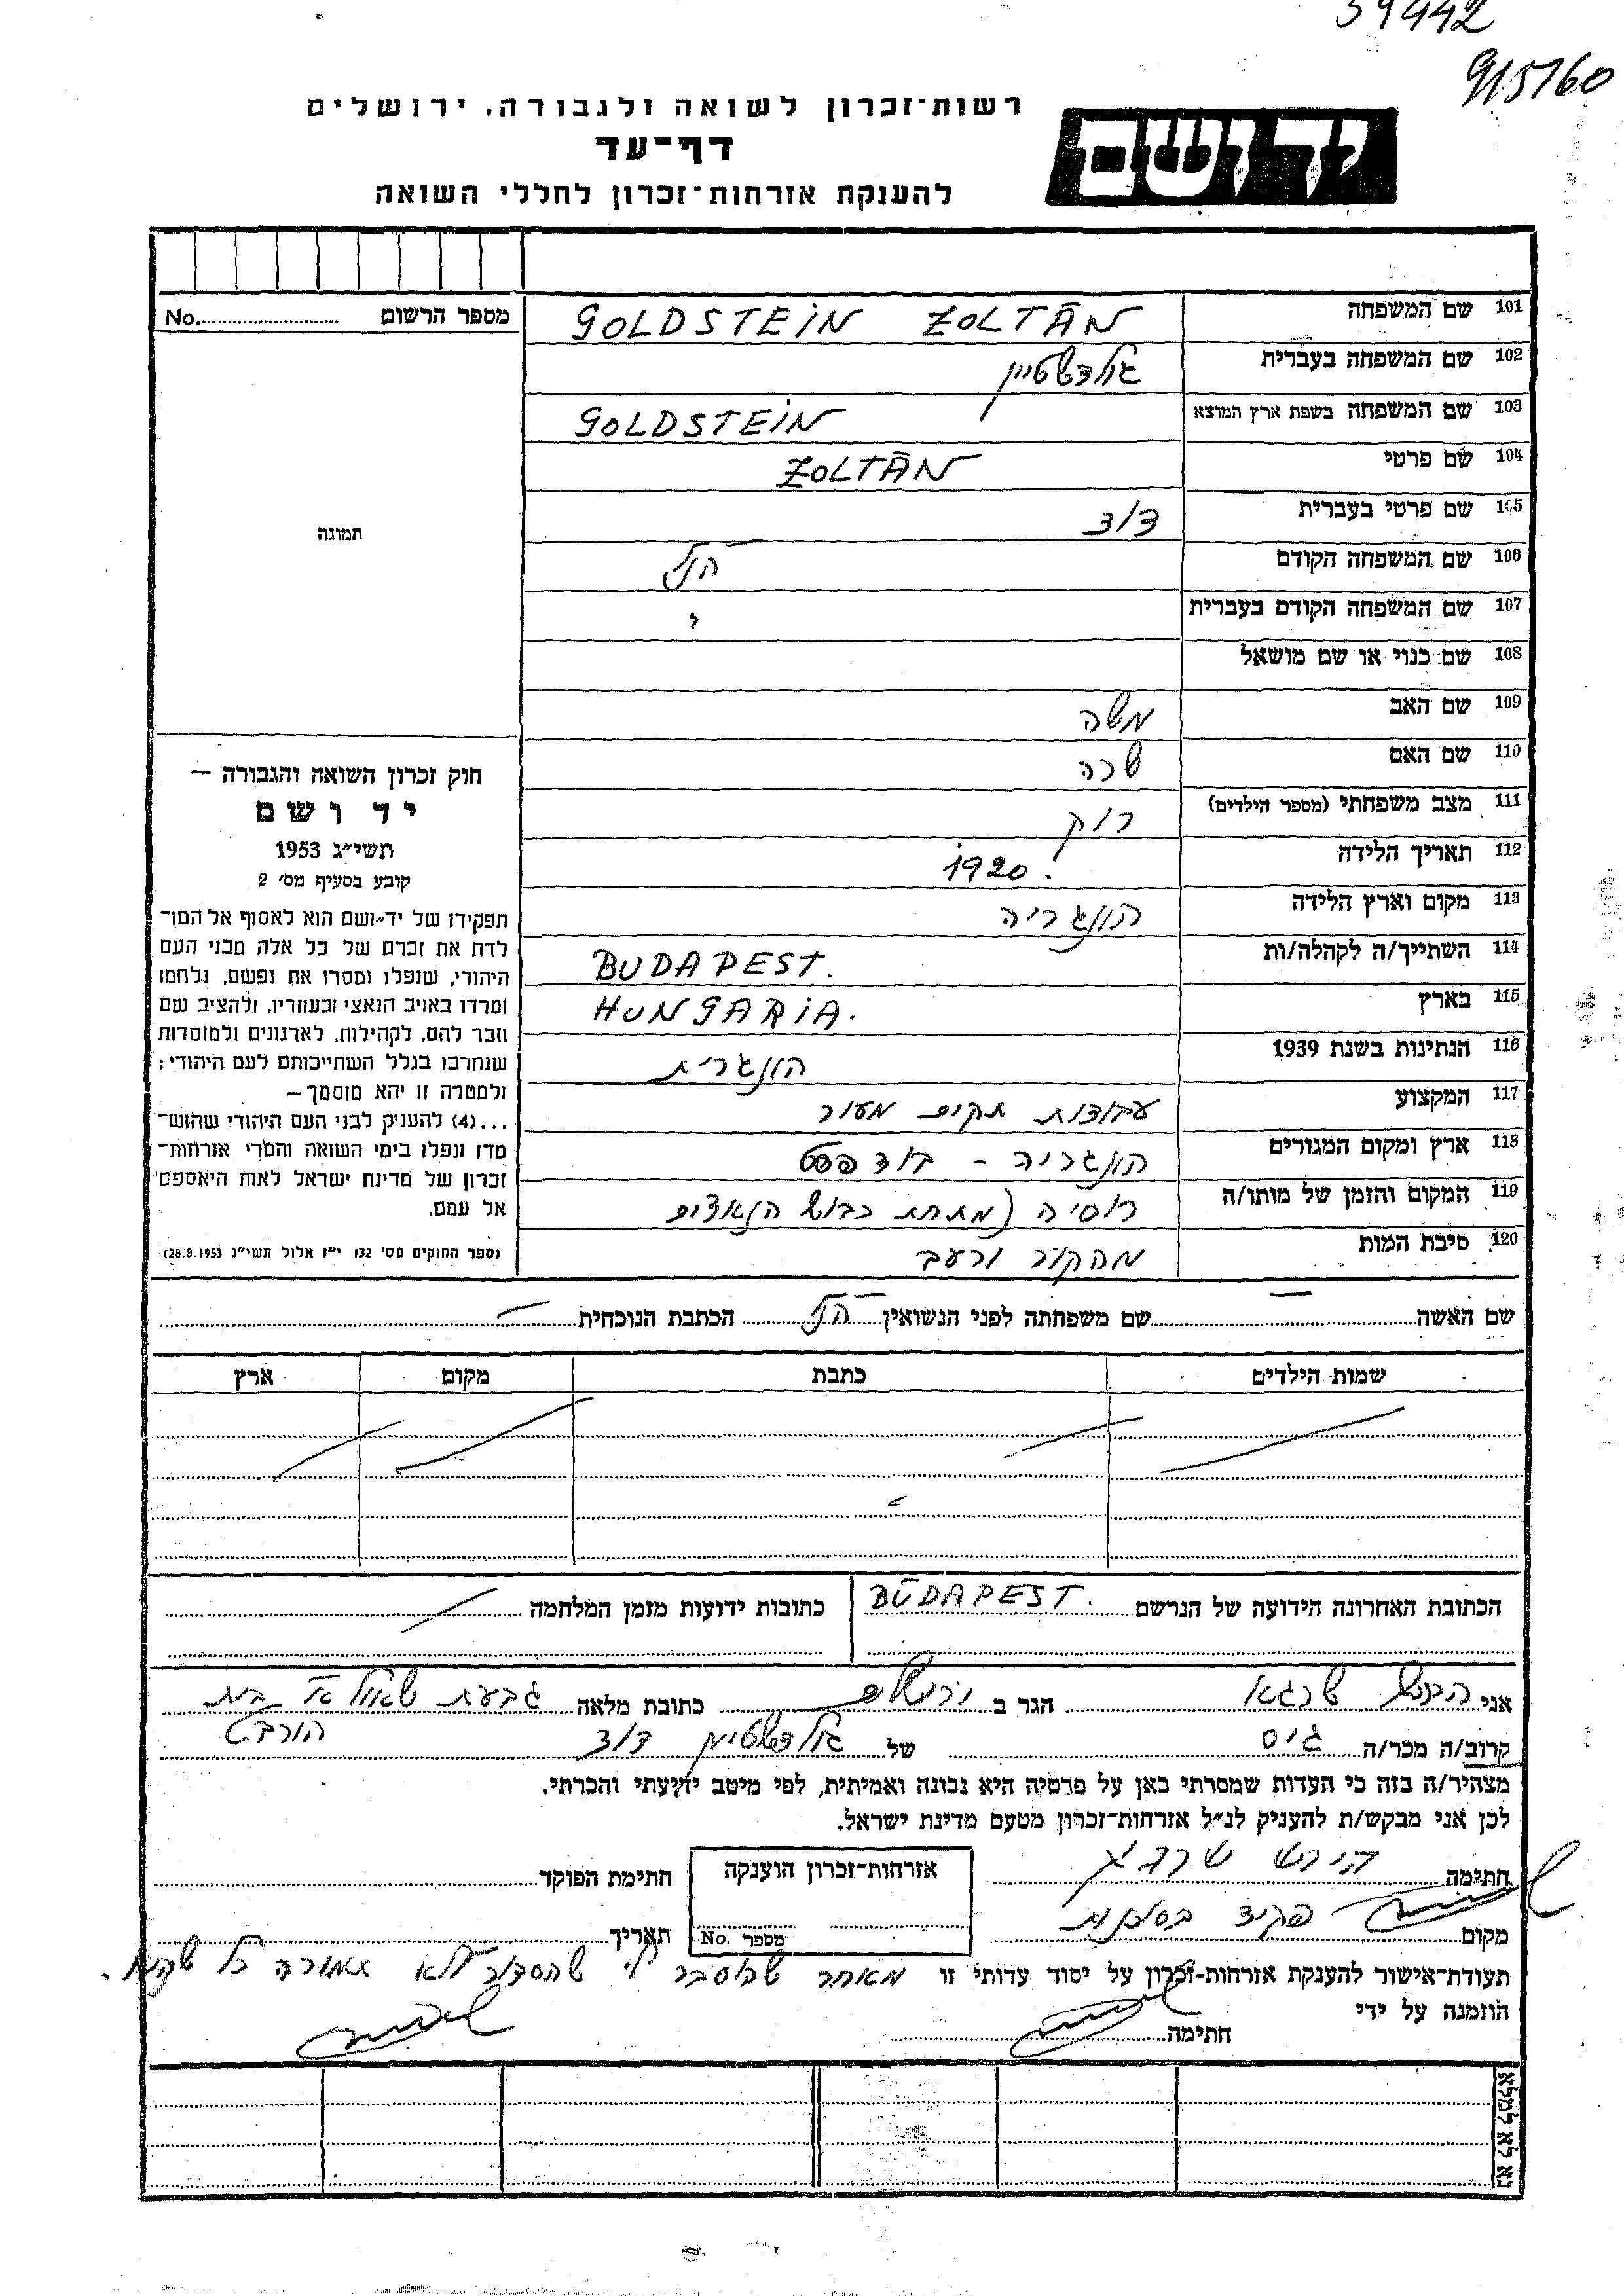 39442
915760
יד ושם
רשות־זכרון לשואה ולגבורה, ירושלים
דף־עד
להענקת אזרחות־זכרון לחללי השואה
מספר הרשום No.
101 שם המשפחה GOLDSTEIN ZOLTÁN
102 שם המשפחה בעברית גולדשטיין
103 שם המשפחה בשפת ארץ המוצא GOLDSTEIN
104 שם פרטי ZOLTÁN
105 שם פרטי בעברית דוד
106 שם המשפחה הקודם הנ"ל
107 שם המשפחה הקודם בעברית
108 שם כנוי או שם מושאל
109 שם האב משה
110 שם האם שרה
111 מצב משפחתי (מספר הילדים) רווק
112 תאריך הלידה 1920.
113 מקום וארץ הלידה הונגריה
114 השתייך/ה לקהלה/ות BUDAPEST.
115 בארץ HUNGARIA.
116 הנתינות בשנת 1939 הונגרית
117 המקצוע עבודות תקים מעור
118 ארץ ומקום המגורים הונגריה - בודפסט
119 המקום והזמן של מותו/ה רוסיה (מתחת כבוש הנאצים
120 סיבת המות מהקור ורעב
תמונה
חוק זכרון השואה והגבורה —
יד ושם
תשי״ג 1953
קובע בסעיף מס׳ 2
תפקידו של יד־ושם הוא לאסוף אל המו־
לדת את זכרם של כל אלה מבני העם
היהודי, שנפלו ומסרו את נפשם, נלחמו
ומרדו באויב הנאצי ובעוזריו, ולהציב שם
וזכר להם, לקהילות, לארגונים ולמוסדות
שנחרבו בגלל השתייכותם לעם היהודי;
ולמטרה זו יהא מוסמך—
...(4) להעניק לבני העם היהודי שהוש־
מדו ונפלו בימי השואה והמרי אזרחות־
זכרון של מדינת ישראל לאות היאספם
אל עמם.
(ספר החוקים מס׳ 132 י״ז אלול תשי״ג 28.8.1953)
שם האשה שם משפחתה לפני הנשואין הנ"ל הכתבת הנוכחית
שמות הילדים כתבת מקום ארץ
הכתובת האחרונה הידועה של הנרשם BUDAPEST. כתובות ידועות מזמן המלחמה
אני הירש שרגא הגר ב ירושלים כתובת מלאה גבעת שאול א' בית
קרוב/ה מכר/ה גיס של גולדשטיין דוד הורביץ
מצהיר/ה בזה כי העדות שמסרתי כאן על פרטיה היא נכונה ואמיתית, לפי מיטב ידיעתי והכרתי.
לכן אני מבקש/ת להעניק לנ״ל אזרחות־זכרון מטעם מדינת ישראל.
חתימה הירש שרגא אזרחות־זכרון הוענקה חתימת הפוקד
מקום פקיד בסוכנות מספר No. תאריך
תעודת־אישור להענקת אזרחות־זכרון על יסוד עדותי זו מאחר שהוסבר לי שהסדור לא
הוזמנה על ידי
חתימה
נא לא למלא